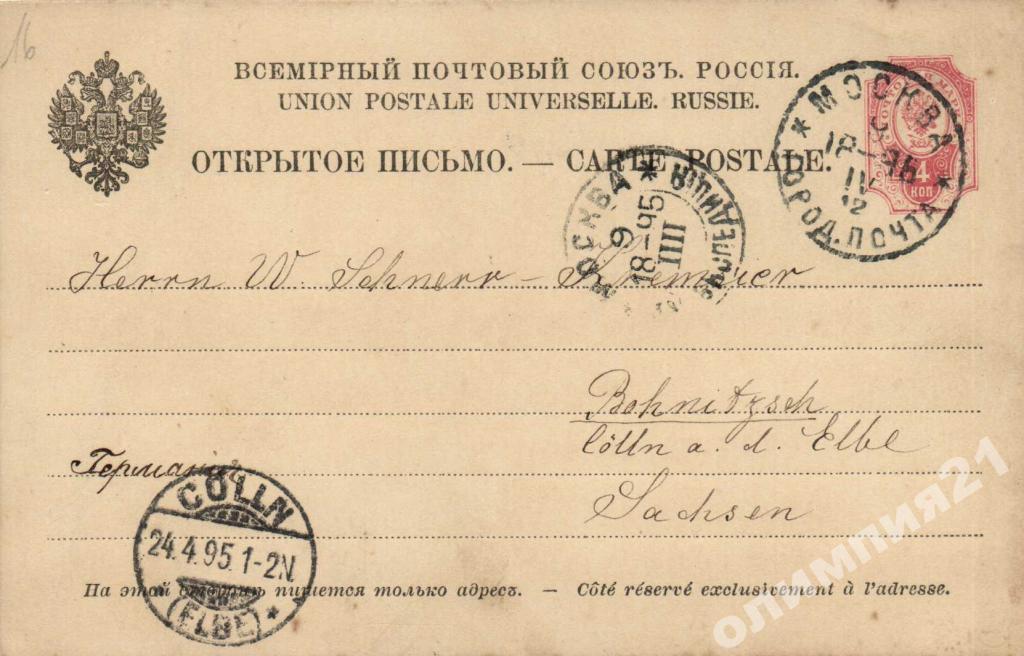 16
ВСЕМІРНЫЙ ПОЧТОВЫЙ СОЮЗЪ. РОССІЯ.
UNION POSTALE UNIVERSELLE. RUSSIE.
ОТКРЫТОЕ ПИСЬМО. — CARTE POSTALE.
4
КОП
* МОСКВА *
18
IV
12
ГОРОД. ПОЧТА
МОСКВА *
9
18-95
IIII
Herrn W. Schnerr-
Bohnitzsch
Cölln a. d. Elbe
Германия
Sachsen
CÖLLN
24.4.95.1-2N.
(ELBE) *
На этой сторонѣ пишется только адресъ. — Côté réservé exclusivement à l'adresse.
олимпия21